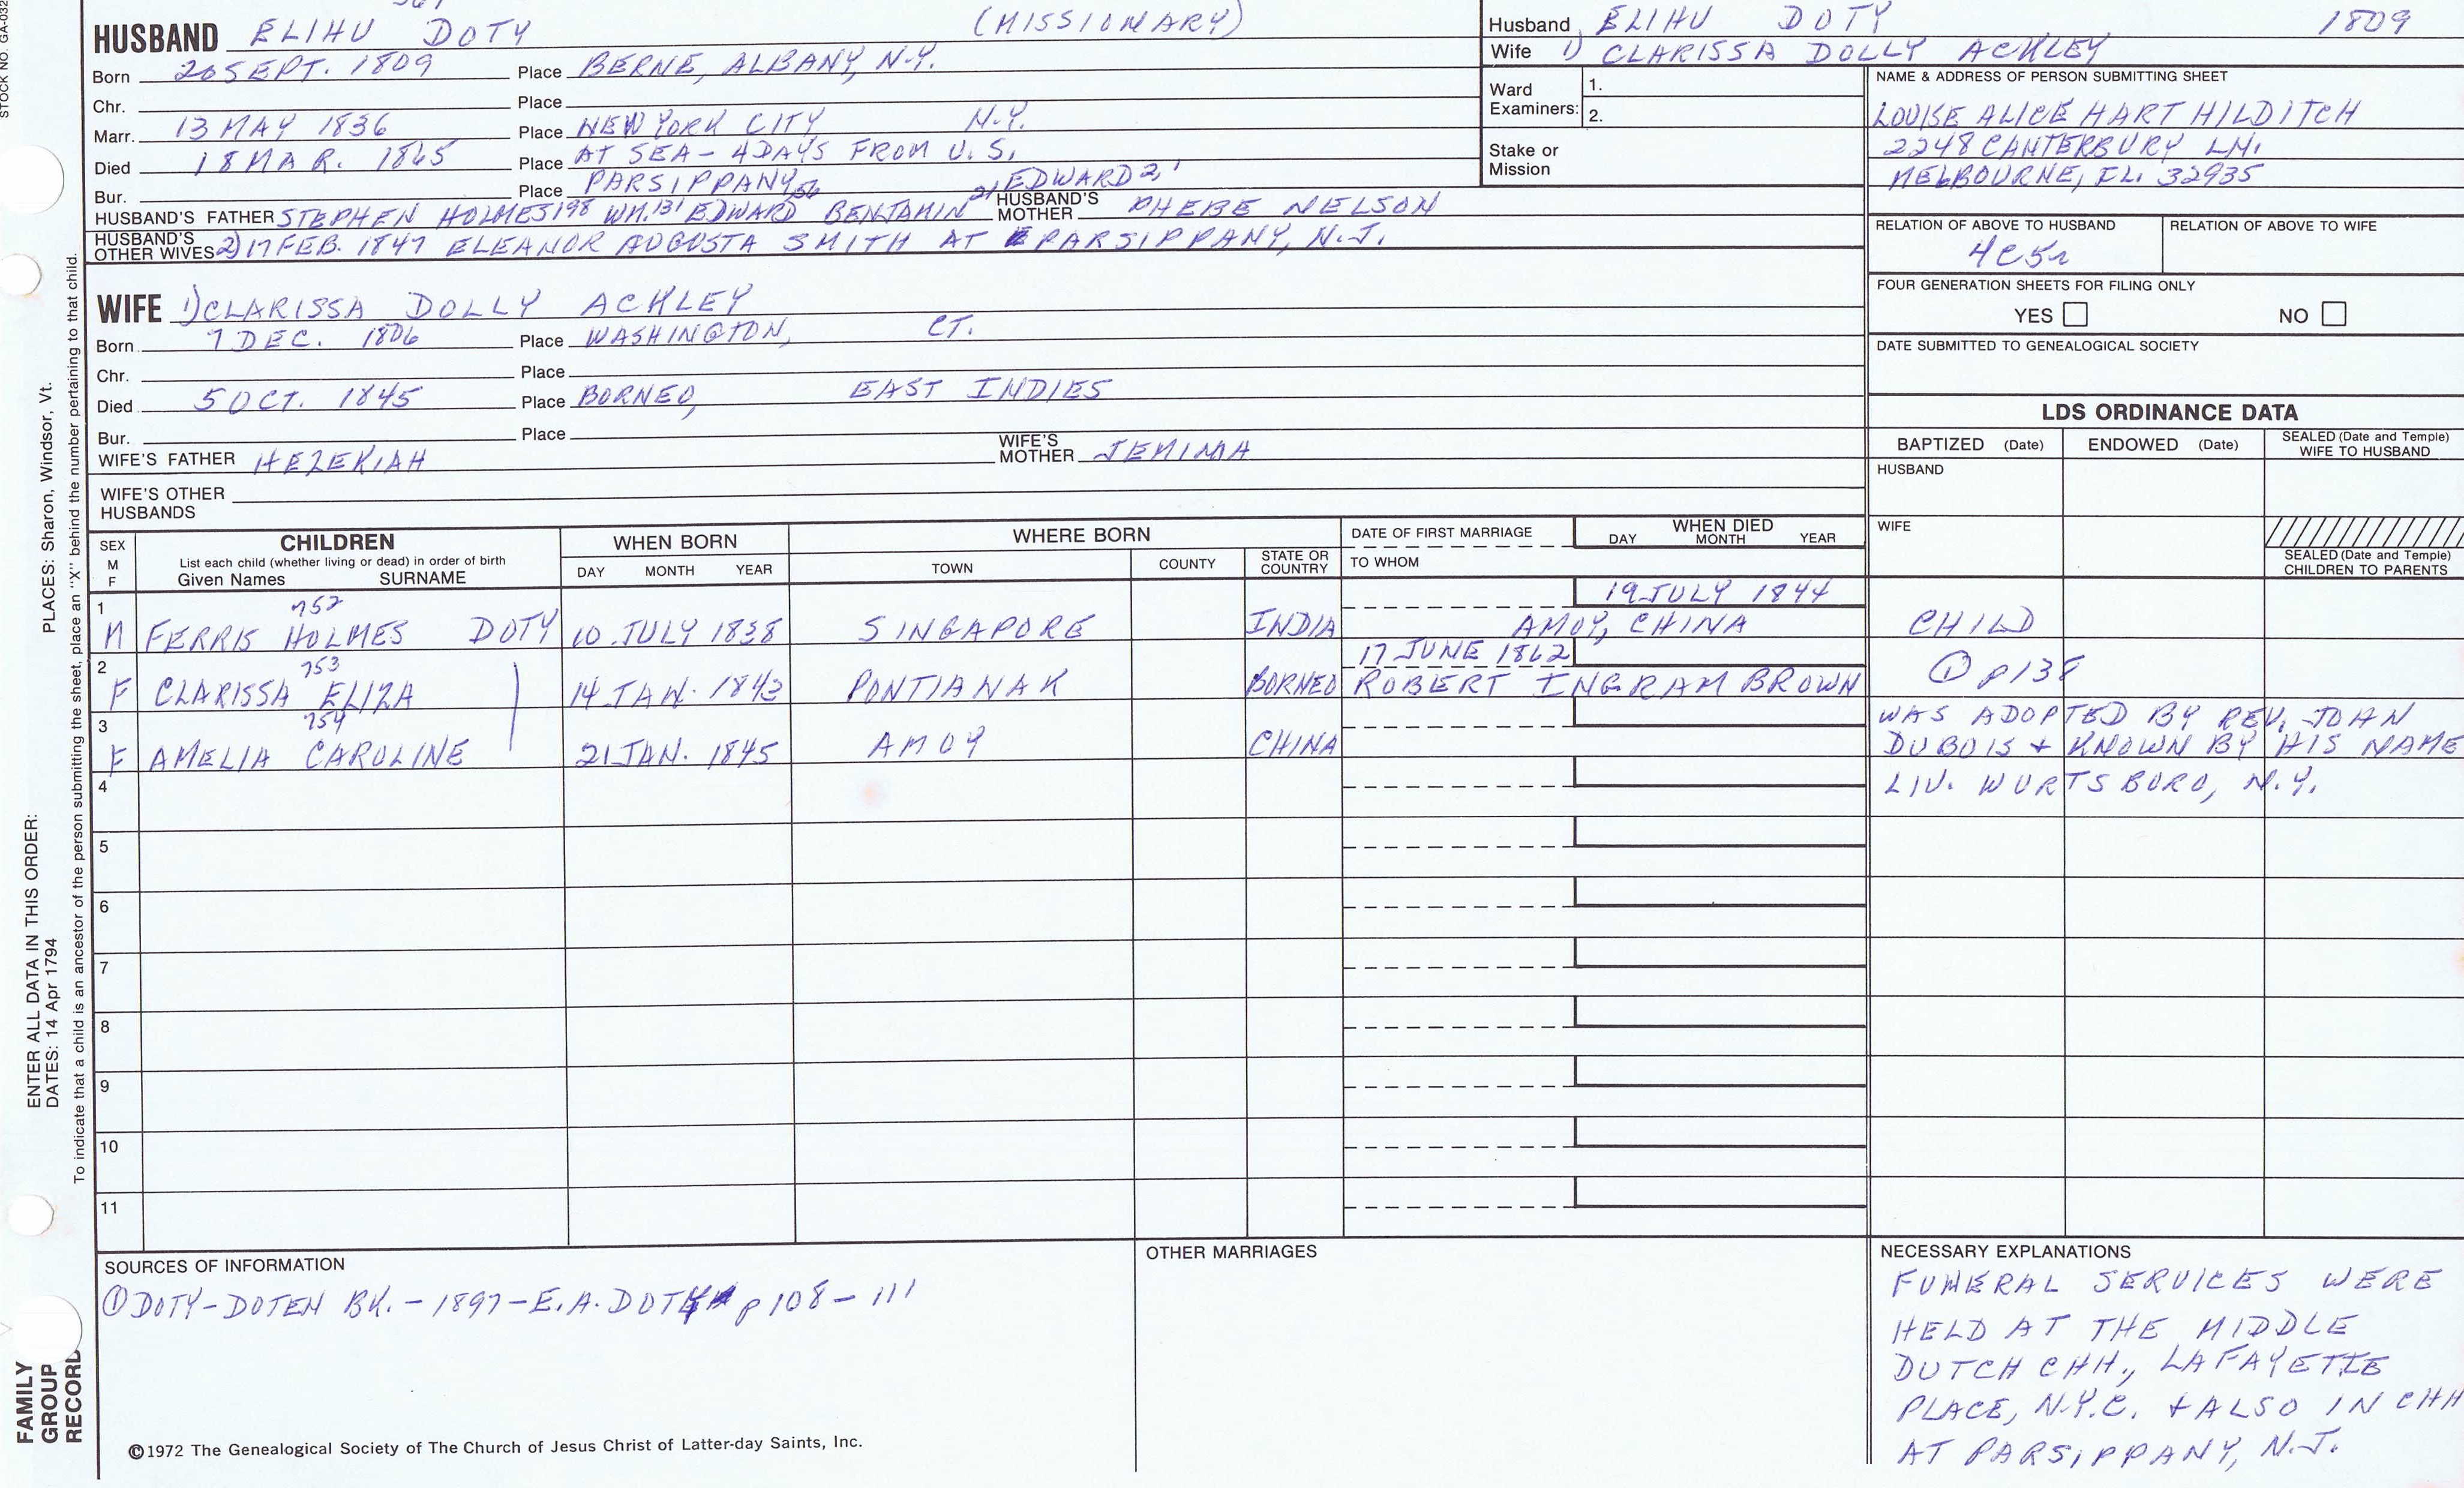 STOCK NO. GA-032
HUSBAND ELIHU DOTY (MISSIONARY)
Born 20 SEPT. 1809 Place BERNE, ALBANY, N.Y.
Chr. Place
Marr. 13 MAY 1836 Place NEW YORK CITY N.Y.
Died 18 MAR. 1865 Place AT SEA - 4 DAYS FROM U.S.
Bur. Place PARSIPPANY
HUSBAND'S FATHER STEPHEN HOLMES198 WM.131 EDWARD56 BENJAMIN21 EDWARD2,1 HUSBAND'S MOTHER PHEBE NELSON
HUSBAND'S OTHER WIVES 2) 17 FEB. 1847 ELEANOR AUGUSTA SMITH AT PARSIPPANY, N.J.
Husband ELIHU DOTY 1809
Wife 1) CLARISSA DOLLY ACKLEY
Ward Examiners: 1.
2.
Stake or Mission
NAME & ADDRESS OF PERSON SUBMITTING SHEET
LOUISE ALICE HART HILDITCH
2248 CANTERBURY LN.
MELBOURNE, FL. 32935
RELATION OF ABOVE TO HUSBAND RELATION OF ABOVE TO WIFE
4C5r
FOUR GENERATION SHEETS FOR FILING ONLY
YES NO
DATE SUBMITTED TO GENEALOGICAL SOCIETY
WIFE 1) CLARISSA DOLLY ACKLEY
Born 7 DEC. 1806 Place WASHINGTON, CT.
Chr. Place
Died 5 OCT. 1845 Place BORNEO, EAST INDIES
Bur. Place
WIFE'S FATHER HEZEKIAH WIFE'S MOTHER JEMIMA
WIFE'S OTHER HUSBANDS
LDS ORDINANCE DATA
BAPTIZED (Date) ENDOWED (Date) SEALED (Date and Temple) WIFE TO HUSBAND
HUSBAND
WIFE
SEALED (Date and Temple) CHILDREN TO PARENTS
SEX M F
CHILDREN
List each child (whether living or dead) in order of birth
Given Names SURNAME
WHEN BORN
DAY MONTH YEAR
WHERE BORN
TOWN COUNTY STATE OR COUNTRY
DATE OF FIRST MARRIAGE
TO WHOM
WHEN DIED
DAY MONTH YEAR
1 752 19 JULY 1844
M FERRIS HOLMES DOTY 10 JULY 1838 SINGAPORE INDIA AMOY, CHINA CHILD
2 753 17 JUNE 1862
F CLARISSA ELIZA 14 JAN. 1843 PONTIANAK BORNEO ROBERT INGRAM BROWN ① p138
3 754 WAS ADOPTED BY REV. JOHN
F AMELIA CAROLINE 21 JAN. 1845 AMOY CHINA DUBOIS + KNOWN BY HIS NAME
4 LIV. WURTSBORO, N.Y.
5
6
7
8
9
10
11
SOURCES OF INFORMATION
① DOTY-DOTEN BK. - 1897 - E.A. DOTY p108-111
OTHER MARRIAGES
NECESSARY EXPLANATIONS
FUNERAL SERVICES WERE
HELD AT THE MIDDLE
DUTCH CHH., LAFAYETTE
PLACE, N.Y.C. + ALSO IN CHH
AT PARSIPPANY, N.J.
©1972 The Genealogical Society of The Church of Jesus Christ of Latter-day Saints, Inc.
ENTER ALL DATA IN THIS ORDER:
DATES: 14 Apr 1794
PLACES: Sharon, Windsor, Vt.
To indicate that a child is an ancestor of the person submitting the sheet, place an "X" behind the number pertaining to that child.
FAMILY
GROUP
RECORD